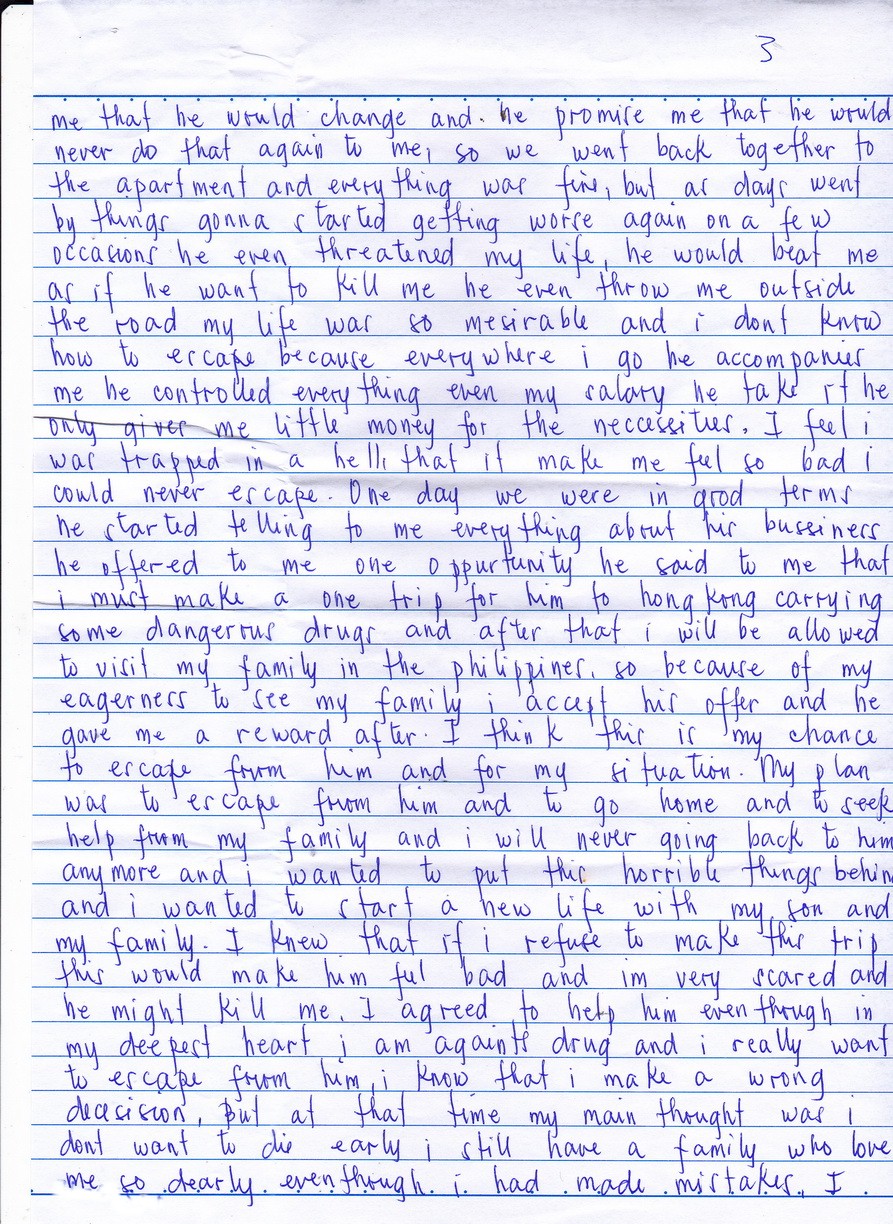 3
me that he would change and. he promise me that he would
never do that again to me, so we went back together to
the apartment and everything was fine, but as days went
by things gonna started getting worse again on a few
occasions he even threatened my life, he would beat me
as if he want to kill me he even throw me outside
the road my life was so mesirable and i dont know
how to escape because everywhere i go he accompanies
me he controlled everything even my salary he take it he
only gives me little money for the neccessities. I feel i
was trapped in a hell, that it make me feel so bad i
could never escape. One day we were in good terms
he started telling to me everything about his bussiness
he offered to me one oppurtunity he said to me that
i must make a one trip for him to hong kong carrying
some dangerous drugs and after that i will be allowed
to visit my family in the philippines. so because of my
eagerness to see my family i accept his offer and he
gave me a reward after. I think this is my chance
to escape from him and for my situation. My plan
was to escape from him and to go home and to seek
help from my family and i will never going back to him
anymore and i wanted to put this horrible things behin
and i wanted to start a new life with my son and
my family. I knew that if i refuse to make this trip
this would make him fel bad and im very scared and
he might kill me. I agreed to help him eventhough in
my deepest heart i am againts drug and i really want
to escape from him, i know that i make a wrong
decasision, But at that time my main thought was i
dont want to die early i still have a family who love
me so dearly eventhough i had made mistakes. I